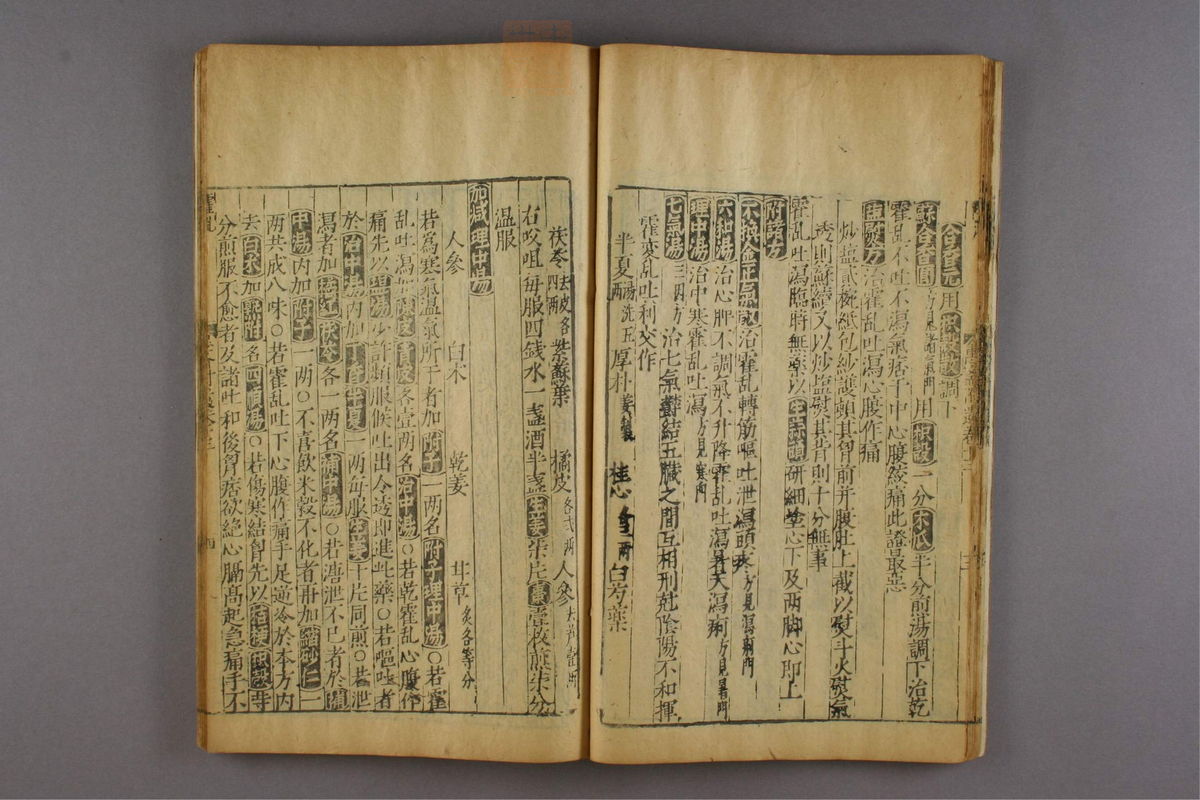 合香元用枳殼散調下
蘇合香圓方見諸氣門用枳殼一分木瓜半分煎湯調下治乾
霍乱不吐不瀉氣痞于中心腹絞痛此證最惡
塩熨方治霍乱吐瀉心腹作痛
炒塩貳椀紙包紗護頓其胷前并腹肚上截以熨斗火熨氣
透則甦續又以炒塩熨其背則十分無事
霍乱吐瀉臨時無藥以生蒜頭研細塗心下及两脚心即止
附諸方
不換金正氣散治霍乱轉筋嘔吐泄瀉頭疼方見瀉痢門
六和湯治心脾不調氣不升降霍乱吐瀉暑天瀉痢方見暑門
理中湯治中寒霍乱吐瀉方見寒門
七氣湯三四方治七氣鬱結五臟之間互相刑尅陰陽不和揮
霍変乱吐利交作
半夏湯洗五两厚朴姜製桂心各三两白芍藥
茯苓去皮各四两紫蘇葉橘皮各弍两人參去芦壹两
右㕮咀每服四錢水一盞酒半盞生姜柒片棗壹枚煎柒分
温服
加減理中湯
人參白术乾姜甘草炙各等分
若為寒氣温氣所干者加附子一两名附子理中湯○若霍
乱吐瀉加陳皮青皮各壹两名治中湯○若乾霍乱心腹作
痛先以塩湯少許頻服候吐出令透即進此藥○若嘔吐者
於治中湯内加丁香半夏一两每服生姜十片同煎○若泄
瀉者加橘紅茯苓各一两名補中湯○若溏泄不已者於補
中湯内加附子一两○不喜飲米穀不化者再加縮砂仁一
两共成八味○若霍乱吐下心腹作痛手足逆冷於本方内
去白术加熟附名四順湯○若傷寒結胷先以桔梗枳殼等
分煎服不愈者及諸吐和後胷痞欲絶心膈高起急痛手不